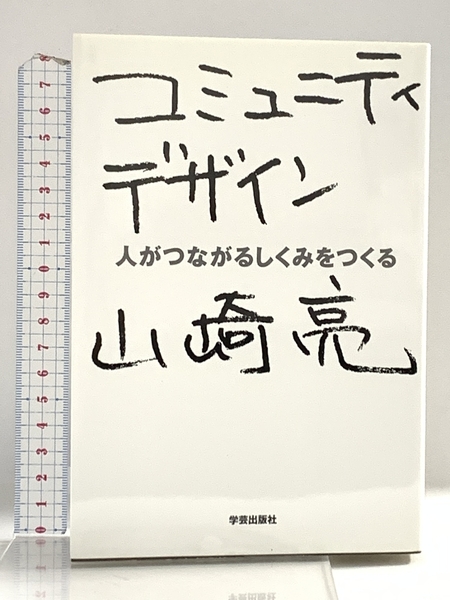 コミュニティ
デザイン
人がつながるしくみをつくる
山崎亮
学芸出版社
8
7
6
5
4
3
2
1
0
9
8
7
6
5
4
3
2
1
0